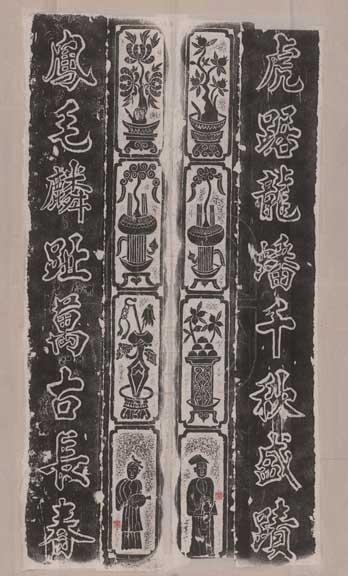 虎踞龍蟠千秋盛蹟
鳳毛麟趾萬古長春